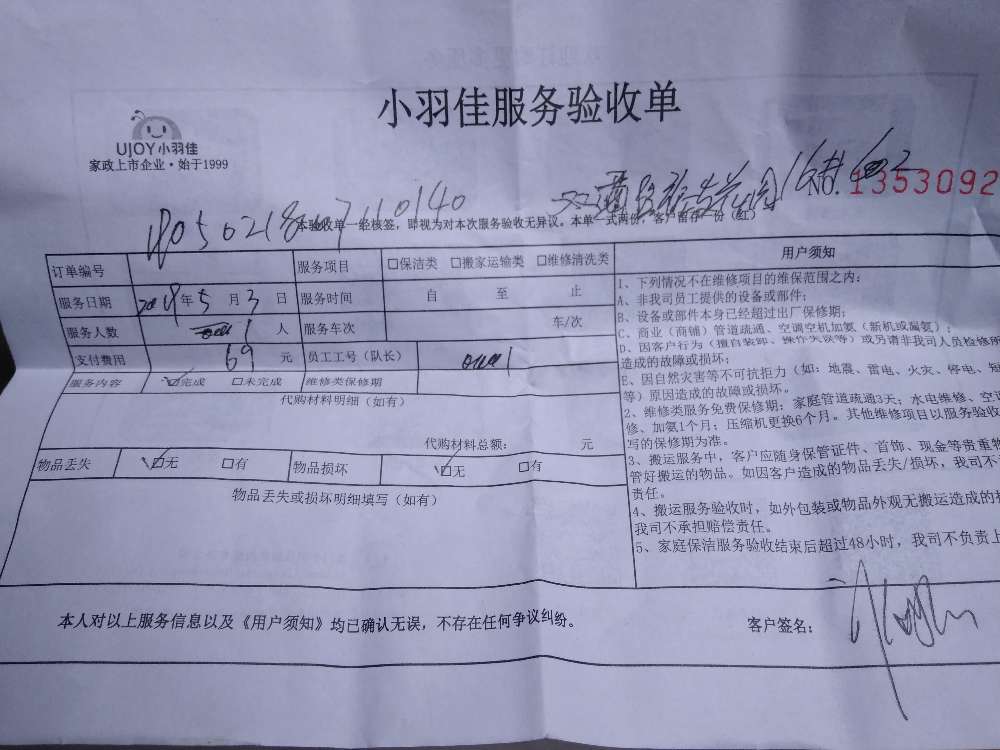 小羽佳服务验收单
UJOY小羽佳
家政上市企业·始于1999
NO. 1353092
本验收单一经核签，即视为对本次服务验收无异议。本单一式两份，客户留存一份（红）
订单编号 服务项目 □保洁类 □搬家运输类 □维修清洗类
服务日期 年5月3日 服务时间 自 至 止
服务人数 1人 服务车次 车/次
支付费用 69元 员工工号（队长）
服务内容 ☑完成 □未完成 维修类保修期
代购材料明细（如有）
代购材料总额： 元
物品丢失 ☑无 □有 物品损坏 ☑无 □有
物品丢失或损坏明细填写（如有）
用户须知
1、下列情况不在维修项目的维保范围之内：
A、非我司员工提供的设备或部件；
B、设备或部件本身已经超过出厂保修期；
C、商业（商铺）管道疏通、空调空机加氨（新机或漏氨）；
D、因客户行为（擅自装卸、操作失误等）或另请非我司人员检修所
造成的故障或损坏；
E、因自然灾害等不可抗拒力（如：地震、雷电、火灾、停电、短
等）原因造成的故障或损坏。
2、维修类服务免费保修期：家庭管道疏通3天；水电维修、空调
修、加氨1个月；压缩机更换6个月。其他维修项目以服务验收
写的保修期为准。
3、搬运服务中，客户应随身保管证件、首饰、现金等贵重物
管好搬运的物品。如因客户造成的物品丢失/损坏，我司不
责任。
4、搬运服务验收时，如外包装或物品外观无搬运造成的
我司不承担赔偿责任。
5、家庭保洁服务验收结束后超过48小时，我司不负责上
本人对以上服务信息以及《用户须知》均已确认无误，不存在任何争议纠纷。
客户签名：